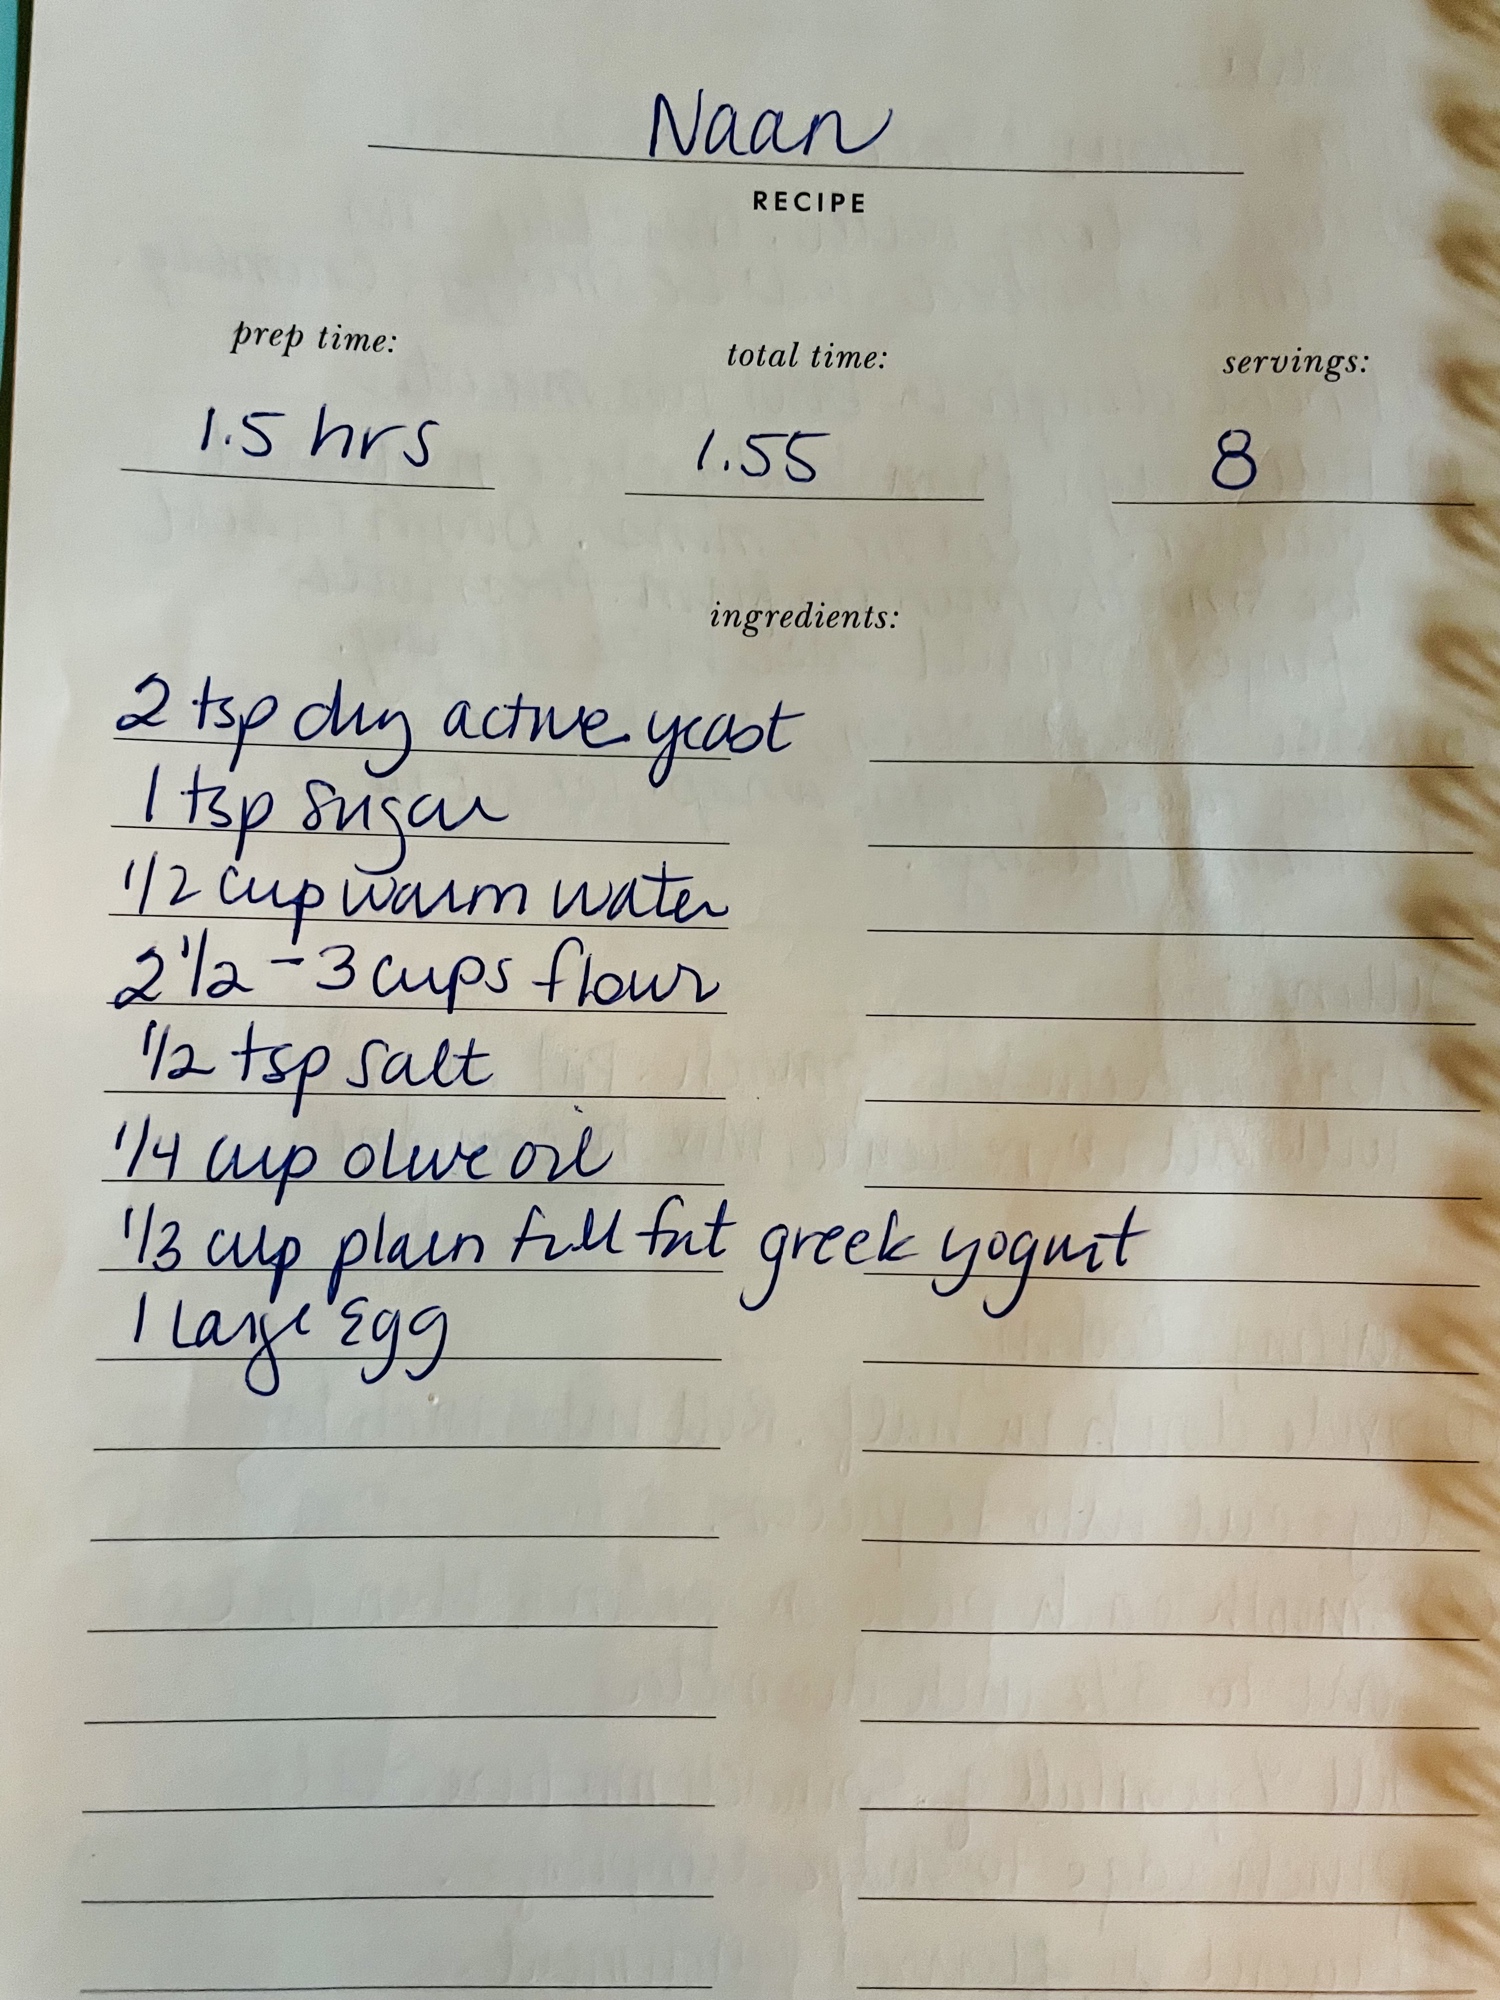 Naan
RECIPE
prep time: total time: servings:
1.5 hrs 1.55 8
ingredients:
2 tsp dry active yeast
1 tsp sugar
1/2 cup warm water
2 1/2 - 3 cups flour
1/2 tsp salt
1/4 cup olive oil
1/3 cup plain full fat greek yogurt
1 Large Egg